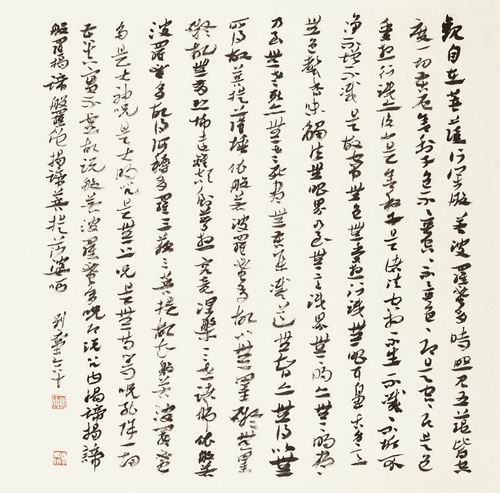 觀自在菩薩行深般若波羅蜜多時照見五蘊皆空
度一切苦厄舍利子色不異空空不異色色即是空空即是色
受想行識亦復如是舍利子是諸法空相不生不滅不垢不
淨不增不減是故空中無色無受想行識無眼耳鼻舌身意
無色聲香味觸法無眼界乃至無意識界無無明亦無無明盡
乃至無老死亦無老死盡無苦集滅道無智亦無得以無
所得故菩提薩埵依般若波羅蜜多故心無罣礙無罣
礙故無有恐怖遠離顛倒夢想究竟涅槃三世諸佛依般若
波羅蜜多故得阿耨多羅三藐三菩提故知般若波羅蜜
多是大神咒是大明咒是無上咒是無等等咒能除一切
苦真實不虛故說般若波羅蜜多咒即說咒曰揭諦揭諦
般羅揭諦般羅僧揭諦菩提莎婆呵